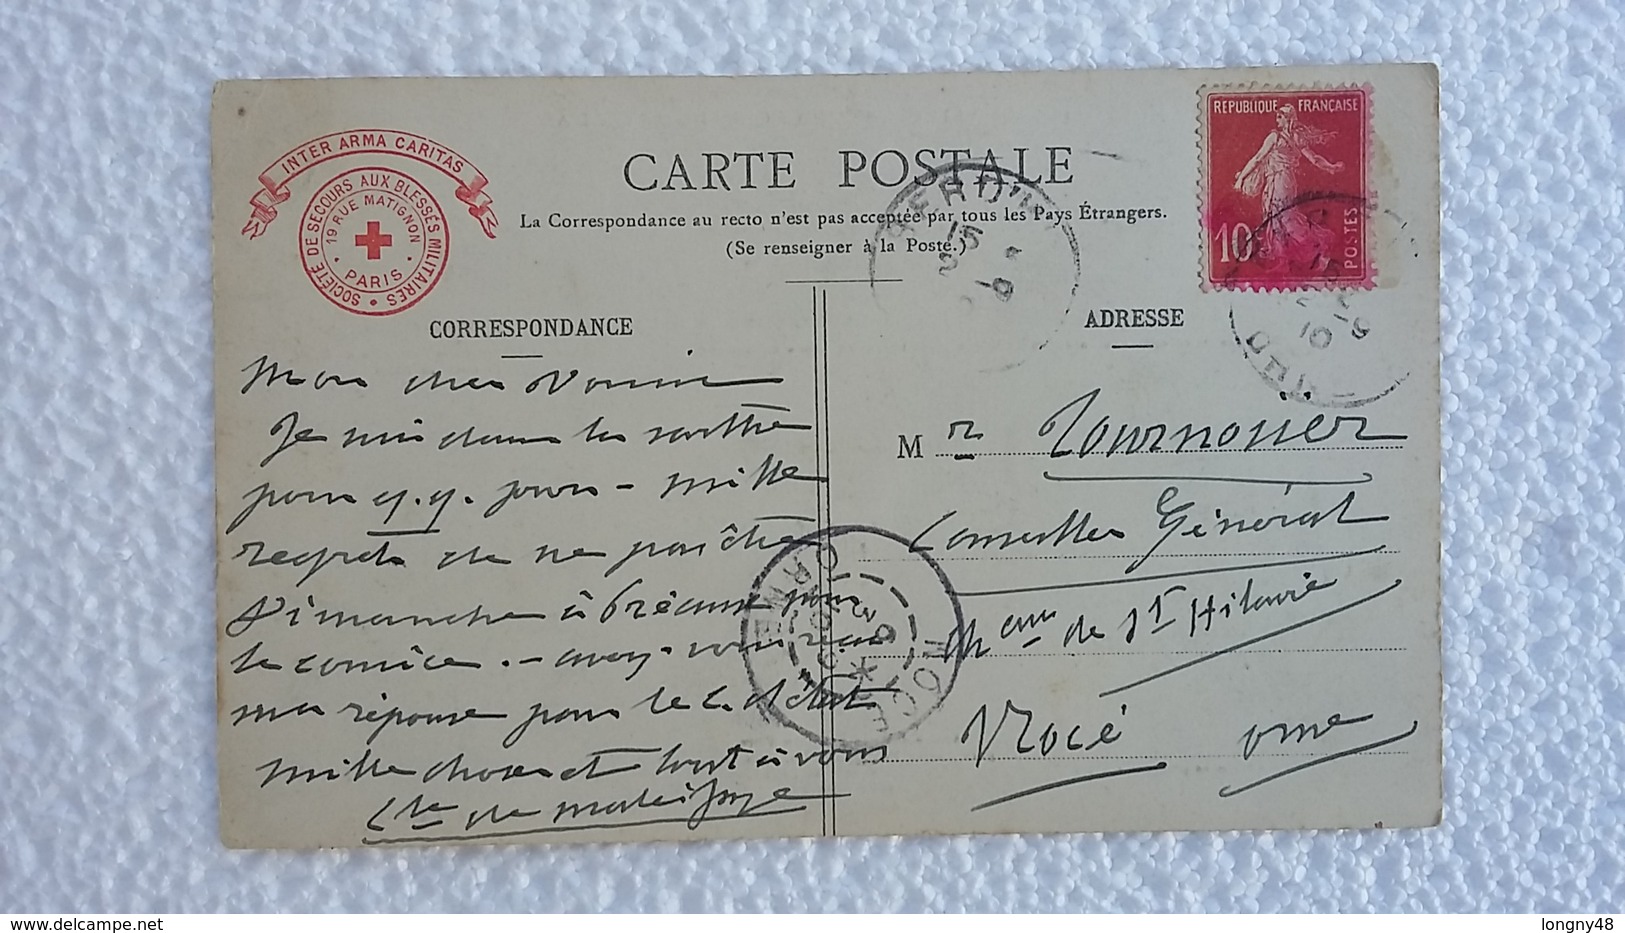 INTER ARMA CARITAS
SOCIÉTÉ DE SECOURS AUX BLESSÉS MILITAIRES
19 RUE MATIGNON
PARIS
CARTE POSTALE
La Correspondance au recto n'est pas acceptée par tous les Pays Étrangers.
(Se renseigner à la Poste.)
REPUBLIQUE FRANÇAISE
10
POSTES
CORRESPONDANCE
ADRESSE
Mon cher Voisin
Je suis dans la Sarthe
pour q.q. jours - mille
regrets de ne paraître
Dimanche à Bréaux pour
le comice. - avez-vous
ma réponse pour le C. d'état
mille choses et tout à vous
Cte de
Mr Tournouer
Conseiller Général
Mau de St Hilaire
Nocé Orne
NOCÉ
ORNE
longny48